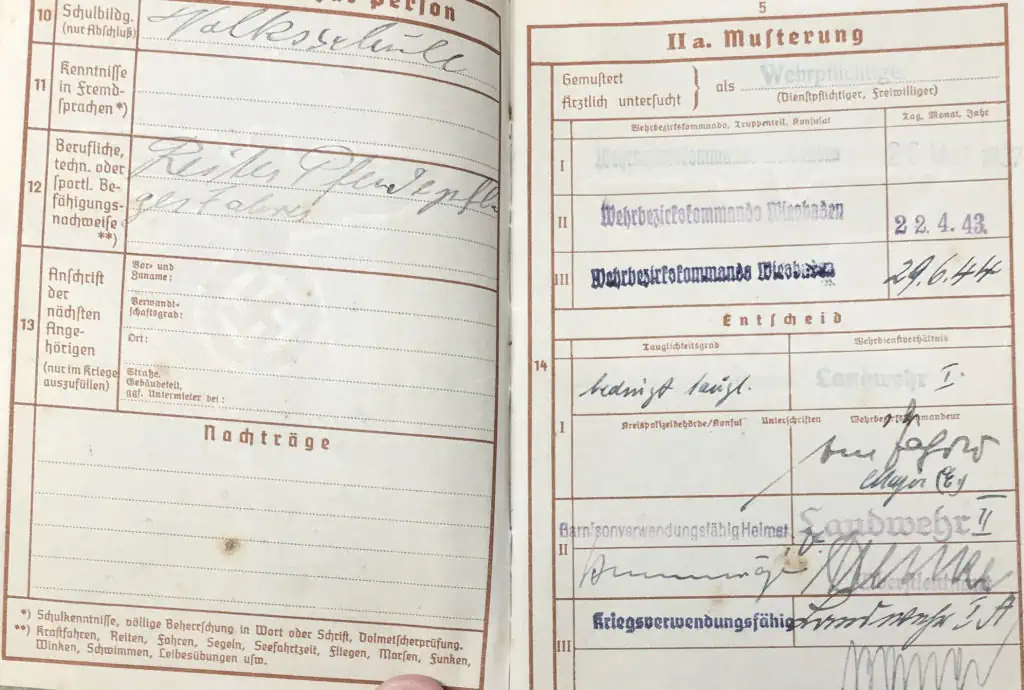 Person
10 Schulbildg.
(nur Abschluß)
Volksschule
11 Kenntnisse
in Fremd-
sprachen *)
12 Berufliche,
techn. oder
sportl. Be-
fähigungs-
nachweise
**)
Reiter
13 Anschrift
der
nächsten
Ange-
hörigen
(nur im Kriege
auszufüllen)
Vor- und
Zuname:
Verwandt-
schaftsgrad:
Ort:
Straße,
Gebäudeteil,
ggf. Untermieter bei:
Nachträge
*) Schulkenntnisse, völlige Beherrschung in Wort oder Schrift, Dolmetscherprüfung.
**) Kraftfahren, Reiten, Fahren, Segeln, Seefahrtzeit, Fliegen, Morsen, Funken,
Winken, Schwimmen, Leibesübungen usw.
5
II a. Musterung
Gemustert
Ärztlich untersucht } als Wehrpflichtiger
(Dienstpflichtiger, Freiwilliger)
Wehrbezirkskommando, Truppenteil, Konsulat
Tag, Monat, Jahr
I Wehrbezirkskommando Wiesbaden
II Wehrbezirkskommando Wiesbaden 22.4.43.
III Wehrbezirkskommando Wiesbaden 29.6.44
Entscheid
Tauglichkeitsgrad Wehrdienstverhältnis
14
bedingt taugl. Landwehr I.
I Kreispolizeibehörde/Konsul Unterschriften Wehrbezirkskommandeur
Major (E)
Garnisonverwendungsfähig Heimat Landwehr II
II
Oberstleutnant
Kriegsverwendungsfähig Landwehr I A
III